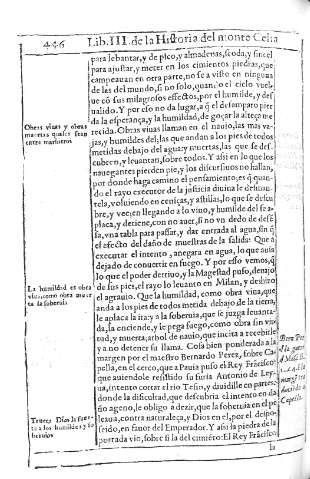 446 Lib. III. de la Historia del monte Celia
para lebantar, y de pico, y almadenas, se oda, y sincel
para ajustar, y meter en los cimientos piedras, que
campeauan en otra parte, no se a visto en ninguna
de las del mundo, si no solo, quan o el cielo vuel-
ue cõ sus milagrosos effectos, por el humilde, y des
ualido. Y por eso no da lugar, a q̃ el desamparo pier
da la esperança, y la humildad, de goçar la alteça me
Obras viuas y obras
muertas quales sean
entre marineros
recida. Obras viuas llaman en el nauio, las mas va-
jas, y humildes del; las que andan a los pies de todos
metidas debajo del agua; y muertas, las que se des-
cubren, y leuantan, sobre todos. Y asi en lo que los
nauegantes pierden pie, y los discursiuos no hallan,
por donde haga camino el pensamiento, es q̃ quan-
do el rayo executor de la justicia diuina le desman-
tela, voluiendo en ceniças, y astillas, lo que se descu
bre, y vee; en llegando a lo viuo, y humilde del se a-
placa, y detiene, con no auer, si no vn dedo de de es-
sa, vna tabla para passar, y dar entrada al agua, sin q̃
el efecto del daño de muestras de la salida: Que a
executar el intento, anegara en agua, lo que auia
dejado de conuertir en fuego. Y por esso vemos, q̃
lo que el poder derriuo, y la Magestad puso, debajo
La humildad es obra
viua, como obra muer
ta la soberuia
de sus pies, el rayo lo leuanto en Milan, y deshizo
el agrauio. Que la humildad, como obra viua, que
anda a los pies de todos metida debajo de la tierra,
le aplaca la ira: y a la soberuia, que se juzga leuanta-
da, la enciende, y le pega fuego, como obra sin vir
tud, y muerta; arbol de nauio, que incita a recebirle
y a no detener su llama. Cosa bien ponderada a la
margen por el maestro Bernardo Perez, sobre Ca-
pella, en el cerco, que a Pauia puso el Rey Frãcisco:
que auiendole resistido su furia Antonio de Ley-
ua, intento cortar el rio Tesin, y diuidille en partes
donde la dificultad, que descubria el intento en da
Trueca Dios la suer-
te a los humildes y so
beruios
ño ageno, le obligo a dezir, que la soberuia en el pe
leaua, contra naturaleça, y Dios en el, por el despo-
seido, en fauor del Emperador. Y asi la piedra de la
portada vio, sobre si la del cimiẽto: El Rey Frãcisco
la